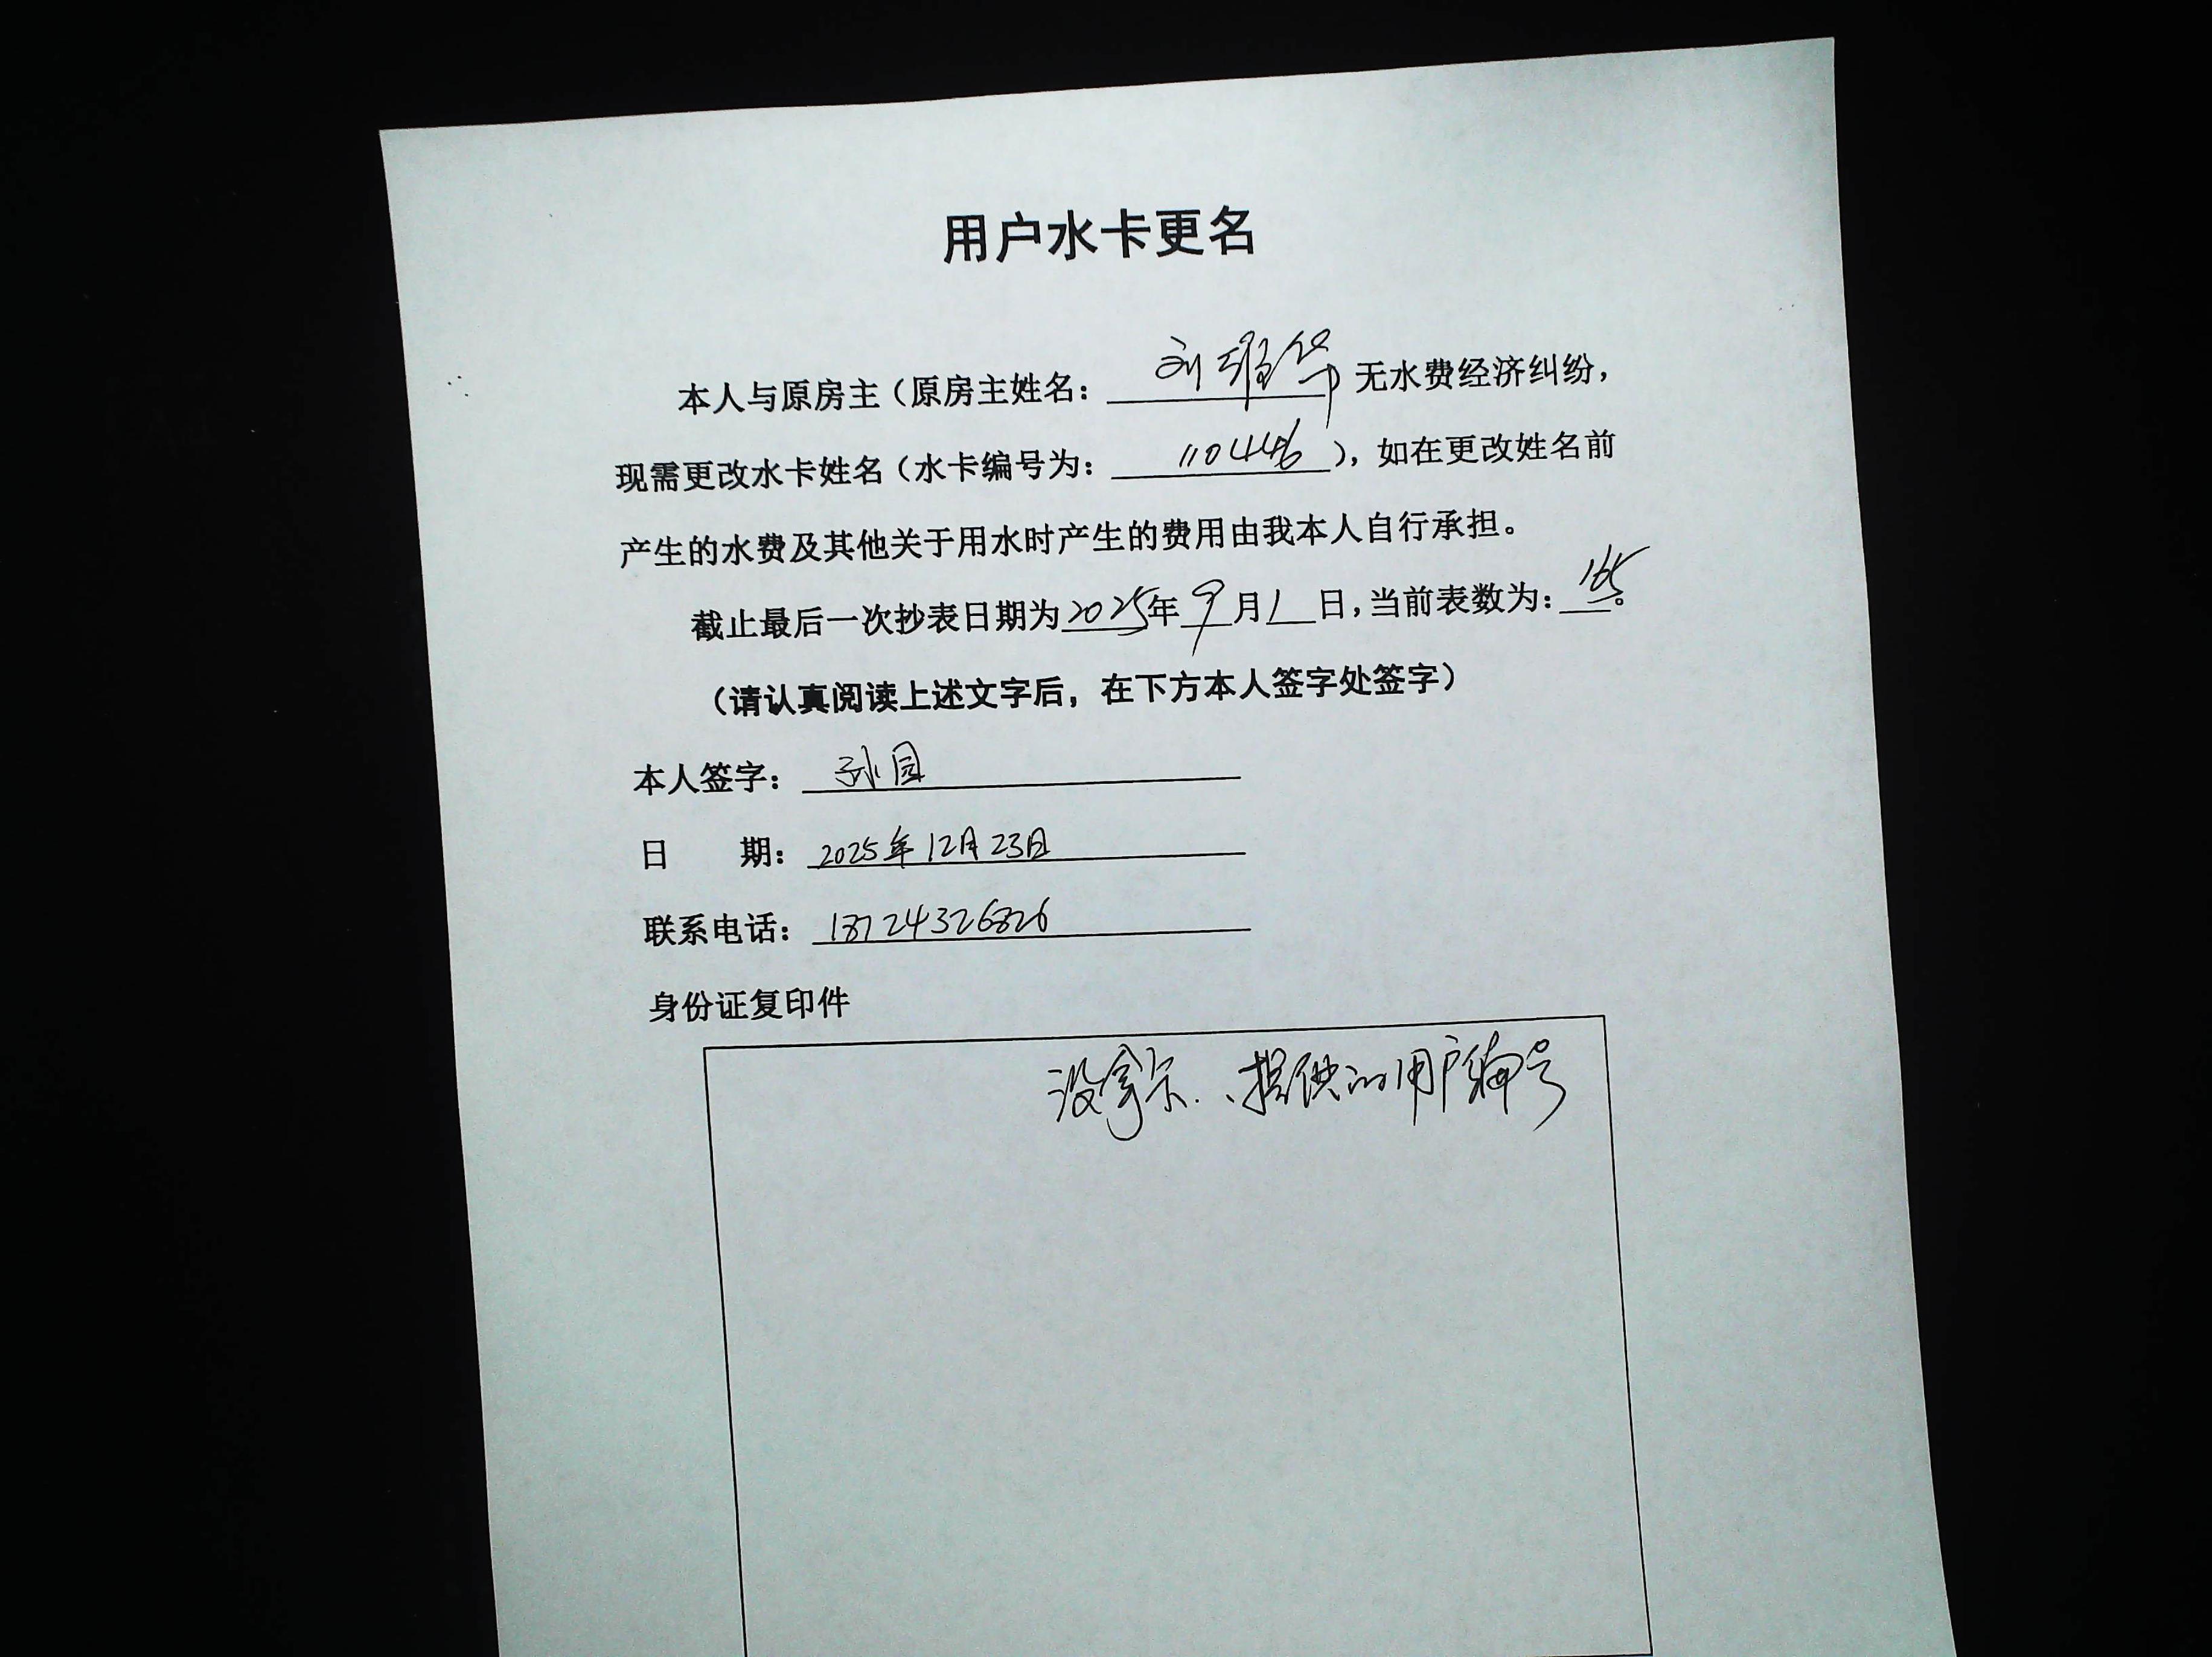 用户水卡更名
本人与原房主（原房主姓名： 刘 华）无水费经济纠纷，
现需更改水卡姓名（水卡编号为： 110446），如在更改姓名前
产生的水费及其他关于用水时产生的费用由我本人自行承担。
截止最后一次抄表日期为2025年9月1日，当前表数为：165。
（请认真阅读上述文字后，在下方本人签字处签字）
本人签字： 孙园
日 期： 2025年12月23日
联系电话： 18724326826
身份证复印件
没拿卡、提供的用户编号